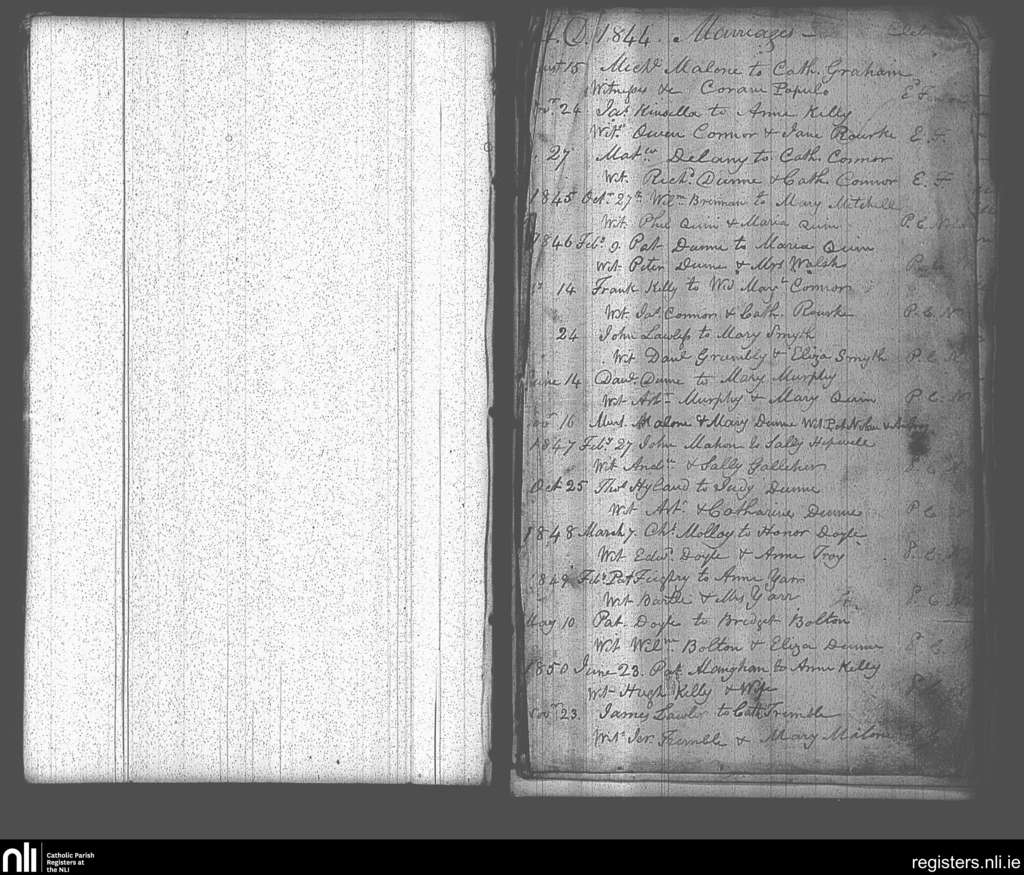 A. D. 1844. Marriages -
15 Michl. Malone to Cath. Graham
Witnesses &c Coram Populo
Novr. 24 Jas. Kinsella to Anne Kelly
Wits. Owen Connor & Jane Rourke E. F.
27 Matw. Delany to Cath. Connor
Wit. Richd. Dunne & Cath. Connor E. F.
1845 Octr. 27th Wilm. Brennan to Mary Mitchell
Wit. Phil Quin & Maria Quin P. C. N
1846 Feby. 9. Pat Dunne to Maria Quin
Wit. Peter Dunne & Mrs Walsh
14 Frank Kelly to Wid Mary Connor
Wit. Jas. Connor & Cath. Rourke P. C. N
24 John Lawless to Mary Smyth
Wit Danl Grumbly & Eliza Smyth P. C. N
June 14 Danl. Dunne to Mary Murphy
Wit Art. Murphy & Mary Quin P. C. N
Nov 16 Malone & Mary Dunne Wit Pat Nolan &
1847 Feby. 27 John Mahon to Sally
Wit Andw. & Sally Galleher P. C. N
Oct 25 Thos Hyland to Judy Dunne
Wit Art. & Catharine Dunne P. C
1848 March 7. Chs. Molloy to Honor Doyle
Wit Edwd. Doyle & Anne Troy P. C. N
1849 Feby. Pat to Anne Yarr
Wit Bartle & Mrs Yarr P. C. N
May 10 Pat. Doyle to Bridget Bolton
Wit Wilm. Bolton & Eliza Dunne P. C
1850 June 23. Pat Maughan to Anne Kelly
Wit Hugh Kelly & Wife P. C.
Novr. 23. James Lawlor to Cath Tremble
Wits. Jer. Tremble & Mary Malone
nli
Catholic Parish
Registers at
the NLI
registers.nli.ie